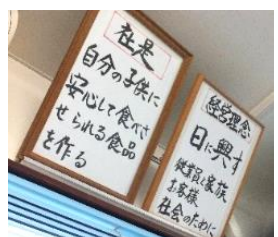 社是
自分の子供に
安心して食べさ
せられる食品
を作る
経営理念
日に興す
従業員と家族
お客様
社会のために